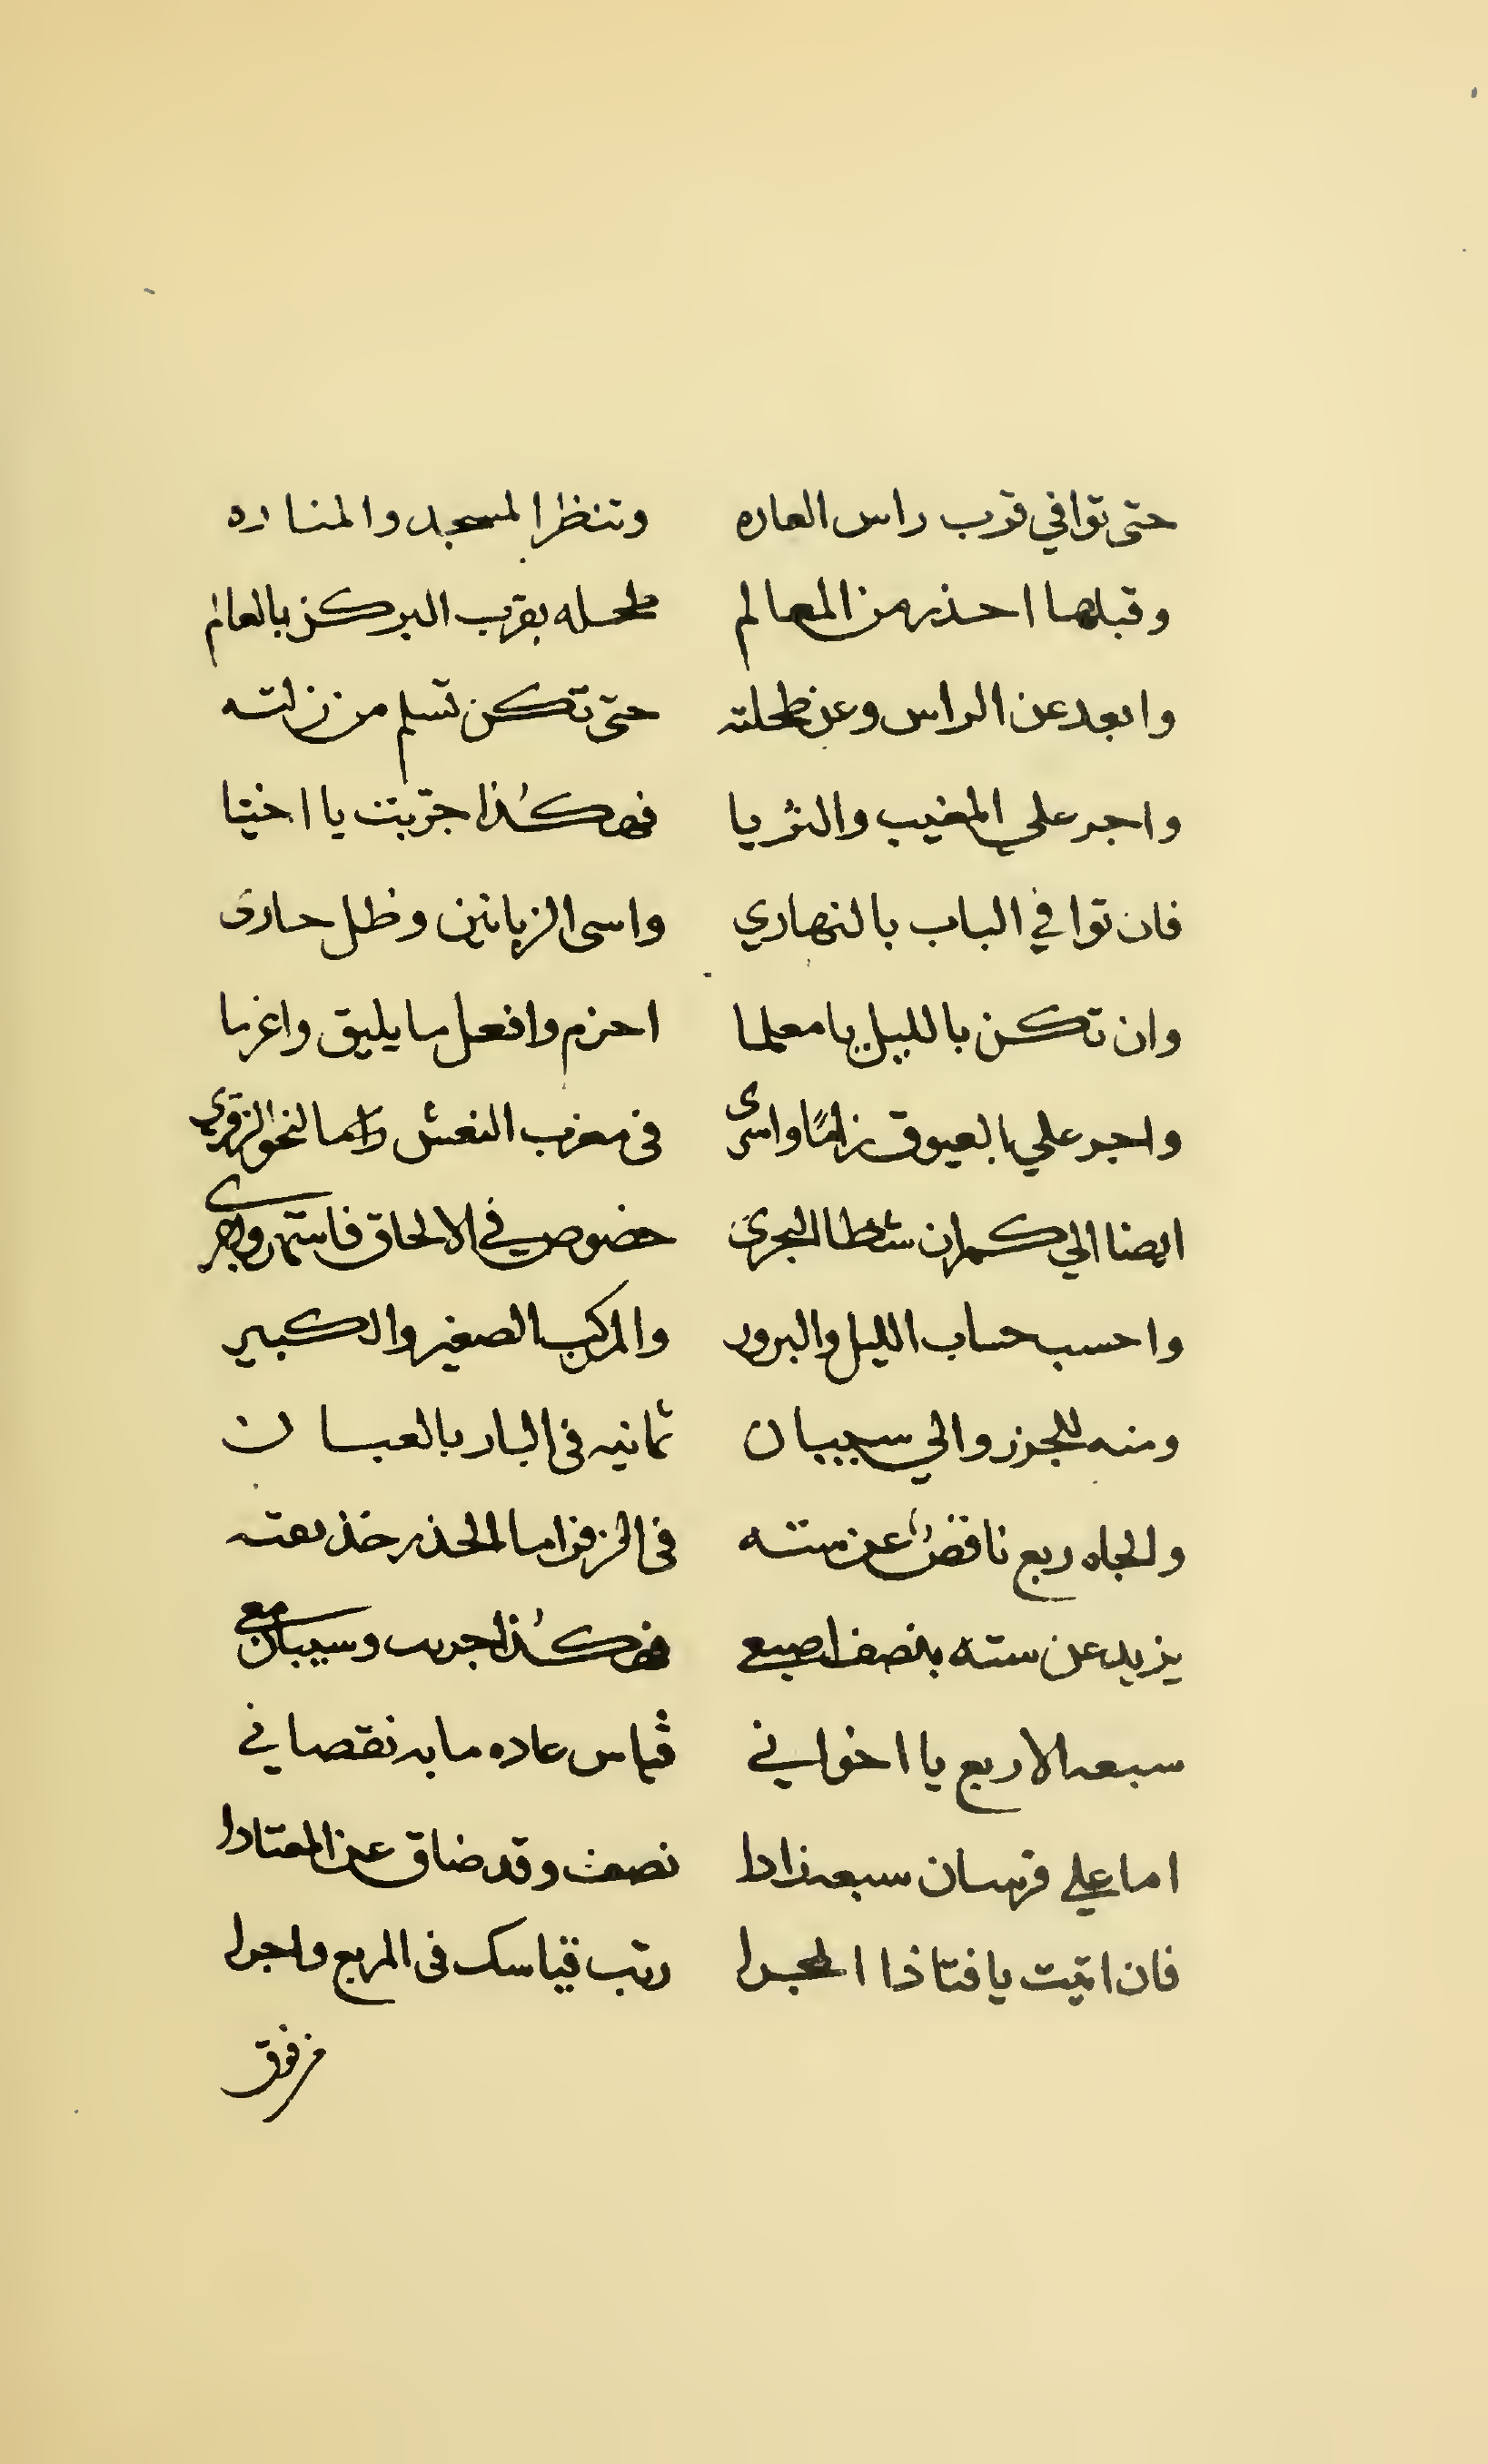 حتى توافي قرب راس العاره وتنظر المسجد والمناره
وقبلها احذر من المعالم طحله بقرب البر كن بالعالم
وابعد عن الراس وعن طحلته حتى تكن تسلم من زلته
واجر علي المغيب والثريا فهكذا جربت يا اخيا
فان توافي الباب بالنهاري واسى الزبانين وظل حارى
وان تكن بالليل يا معلما احزم وافعل ما يليق واغرما
واجر علي العيوق زاما واسرى فى مغرب النعش واما لنحو الزقرى
ايضا الي كمران شطا البحرى خضوص في الالحاق فاستمر واجرى
واحسب حساب الليل والبرور والمركب الصغير والكبير
ومنه للجزر والي سيبان ثمانيه فى البار بالعبسان
والجاه ربع ناقص عن سته فى الخزفرا ما الحذر خذ نعته
يزيد عن سته بنصف اصبع فهكذا جربت وسيبان مع
سبعه الاربع يا اخواني قياس عاده ما به نقصاني
اما علي فرسان سبعه زادا نصف وقد ضاق عن المعتادا
فان اتيت يا فتا ذا المجرا رتب قياسك فى المربع واجرا
من فوق